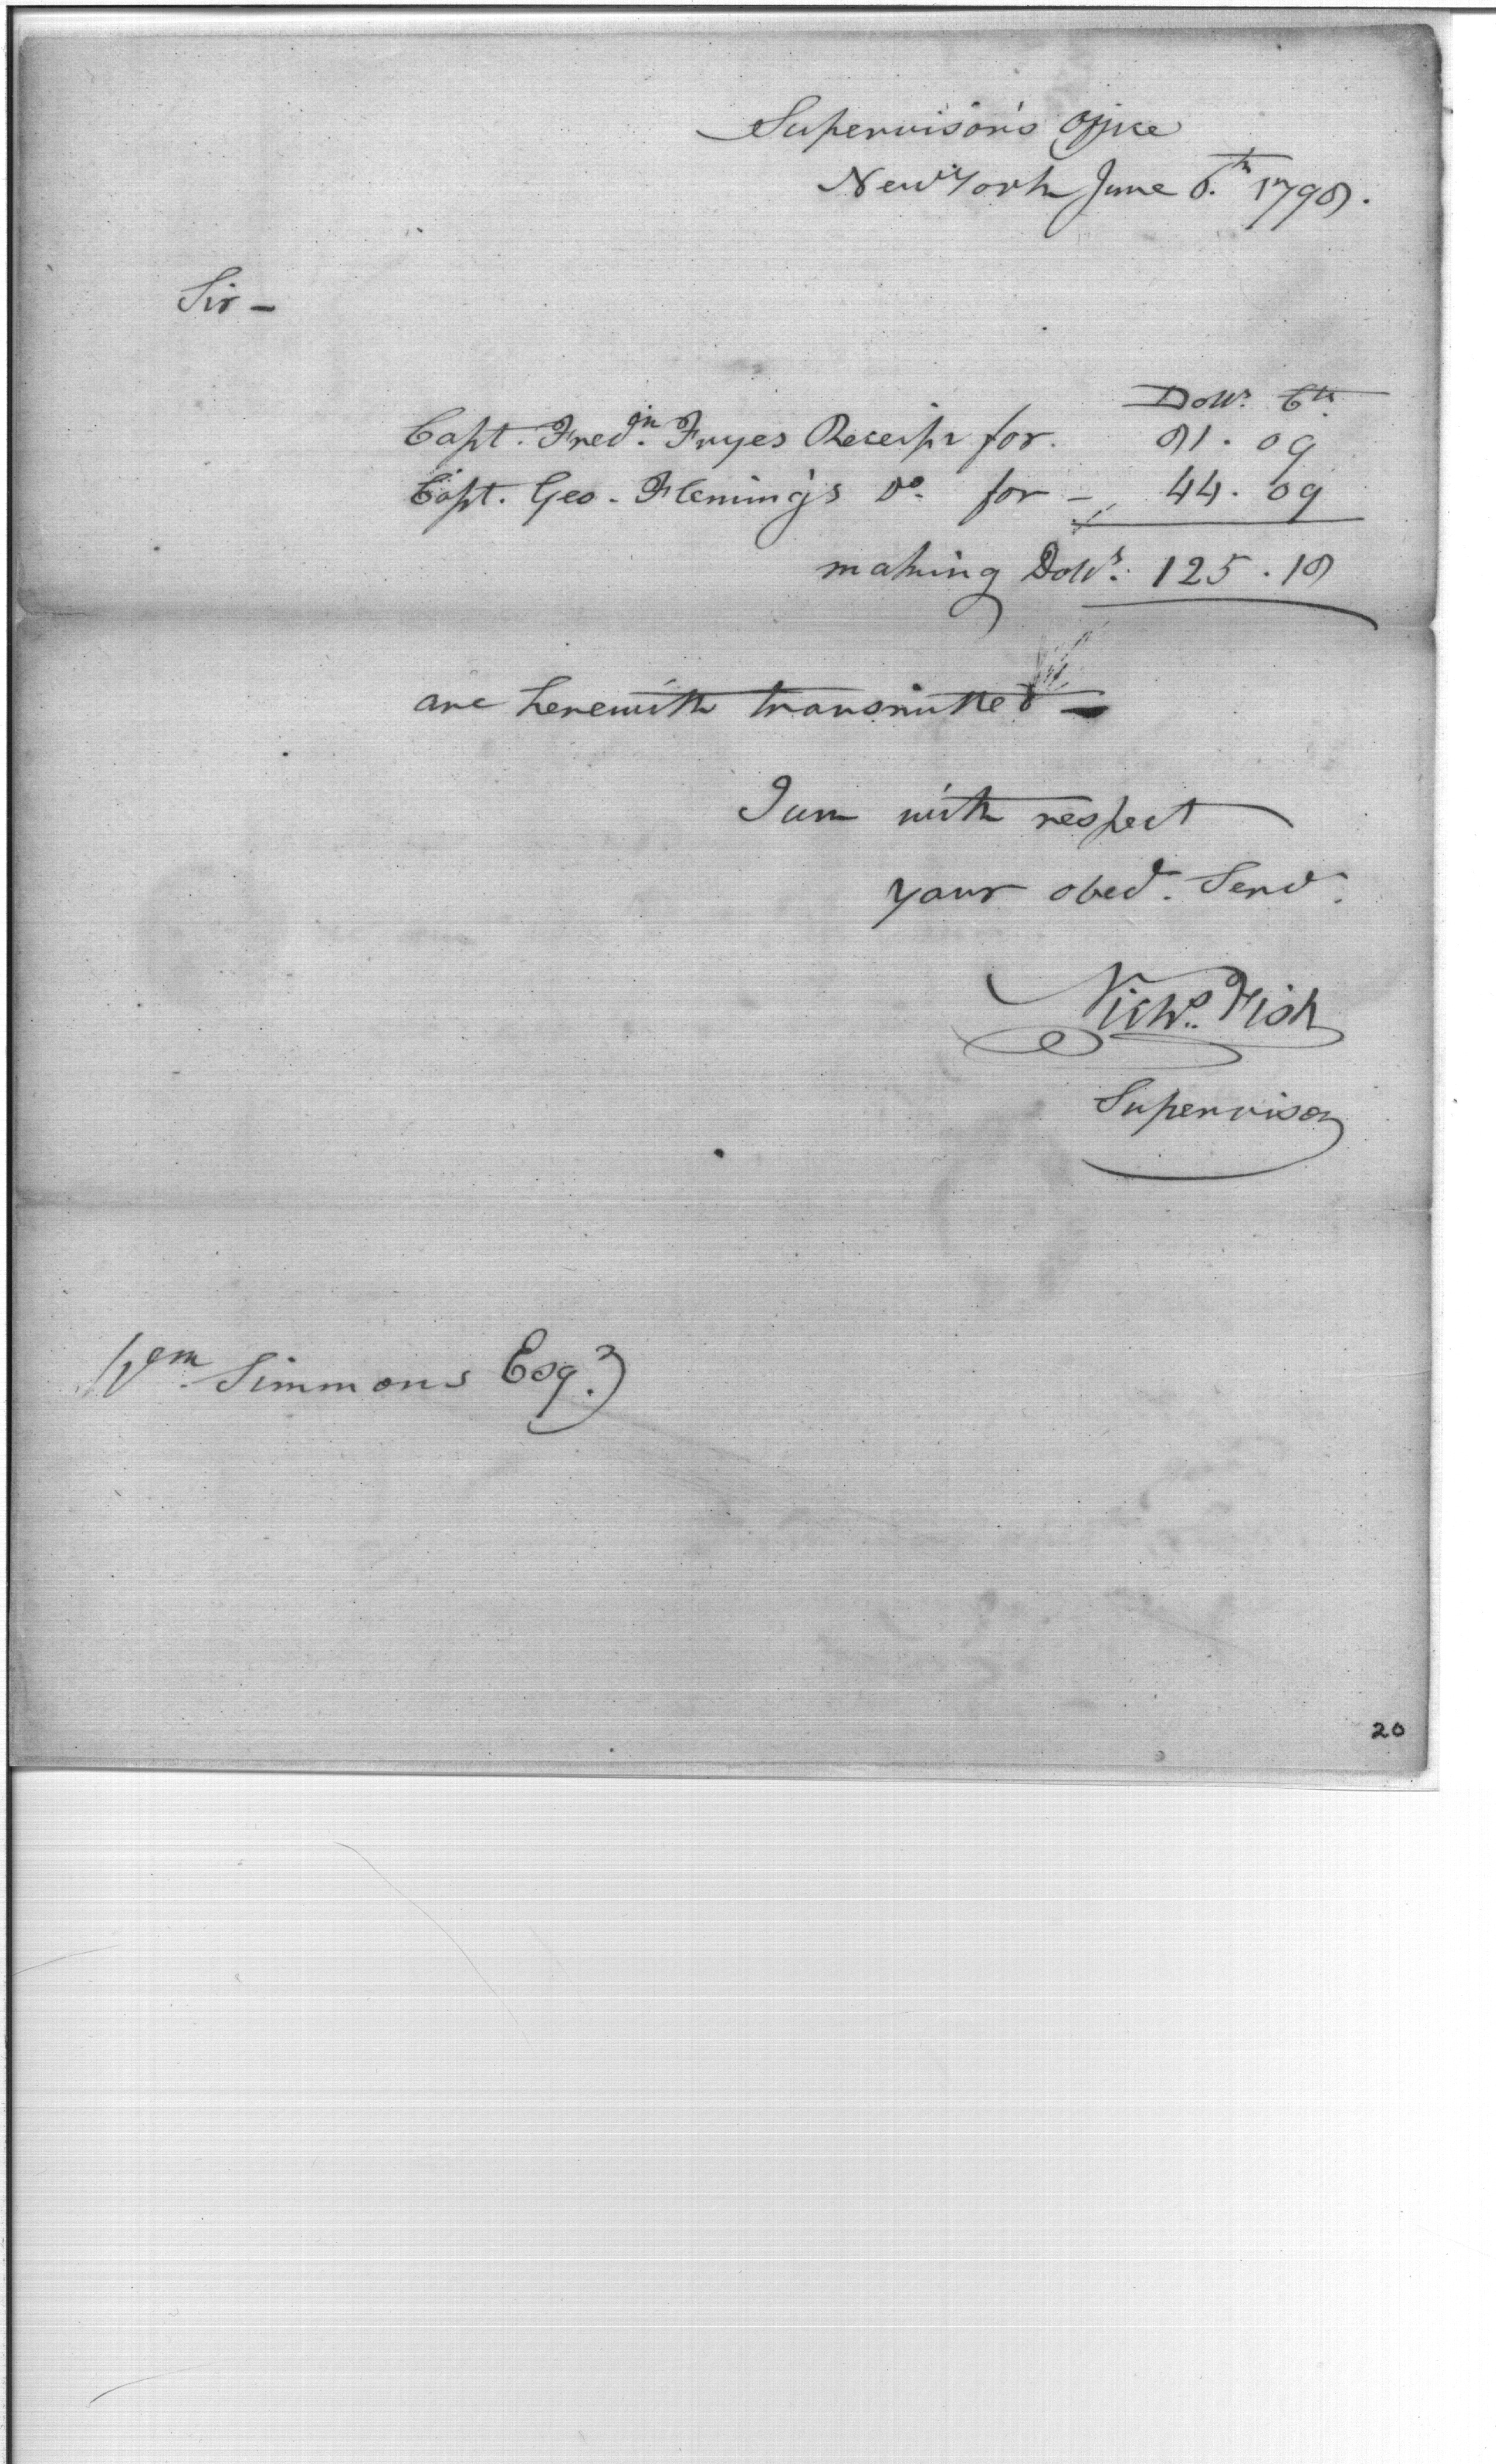 Supervisor's Office
New York June 6.th 1798.
Sir -
Doll.s Cts.
Capt. Fred.k Fryes Receipt for. 81. 09
Capt. Geo. Fleming's Do. for - 44. 09
making Doll.s: 125. 18
are herewith transmitted -
I am with respect
your obed.t Serv.t
Nich.s Fish
Supervisor
Wm. Simmons Esq.r
20